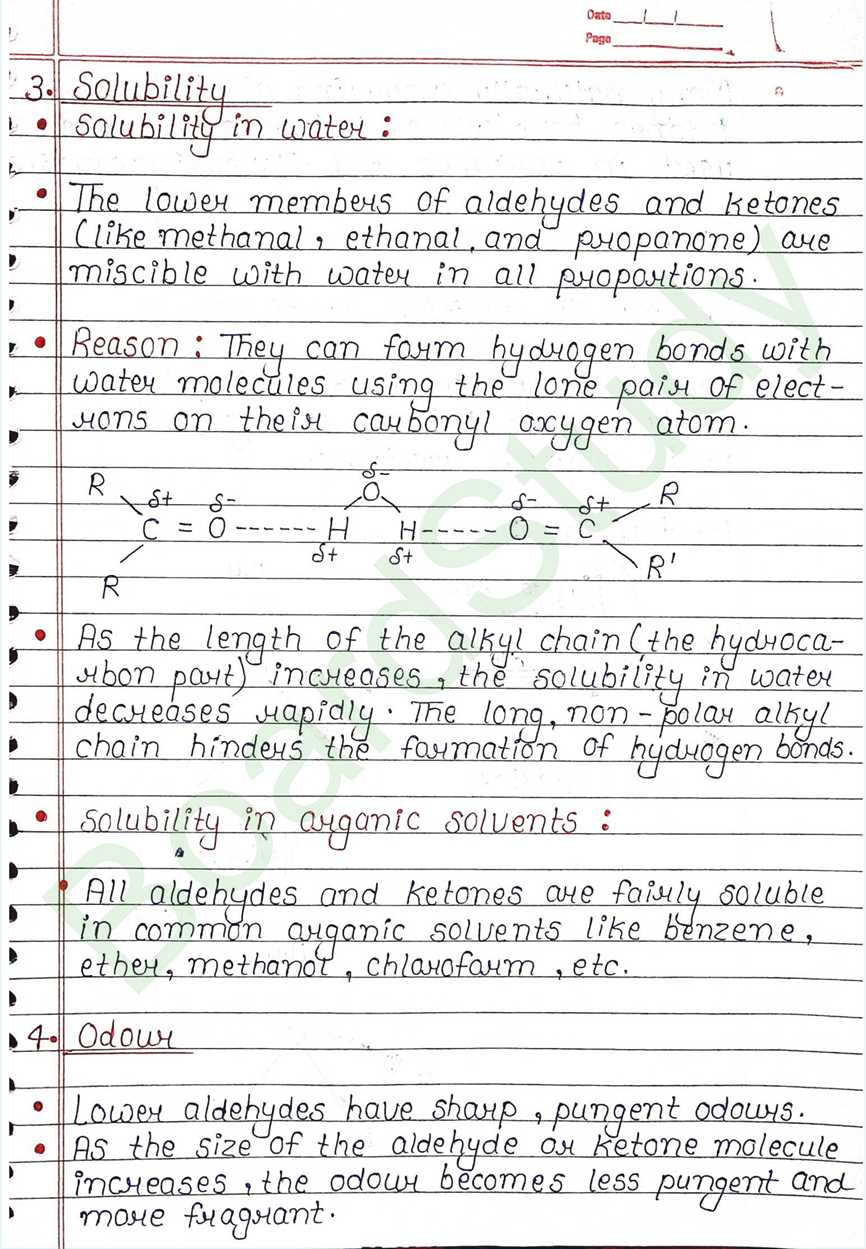 Date
Page
3. Solubility
• Solubility in water :
• The lower members of aldehydes and ketones
(like methanal, ethanal, and propanone) are
miscible with water in all proportions.
• Reason : They can form hydrogen bonds with
water molecules using the lone pair of elect-
rons on their carbonyl oxygen atom.
δ-
R δ+ δ- O δ- δ+ R
C = O ------ H H ----- O = C
δ+ δ+
R R'
• As the length of the alkyl chain (the hydroca-
rbon part) increases, the solubility in water
decreases rapidly. The long, non-polar alkyl
chain hinders the formation of hydrogen bonds.
• Solubility in organic solvents :
• All aldehydes and ketones are fairly soluble
in common organic solvents like benzene,
ether, methanol, chloroform, etc.
4. Odour
• Lower aldehydes have sharp, pungent odours.
• As the size of the aldehyde or ketone molecule
increases, the odour becomes less pungent and
more fragrant.
BoardStudy